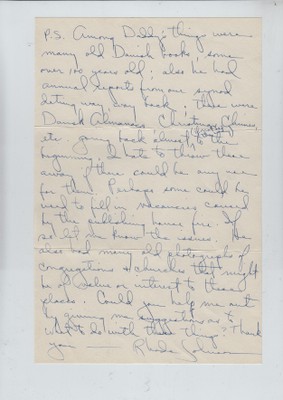 P.S. Among Dad's things were
many old Danish books, some
over 100 years old; also he had
annual reports from our synod
dating way, way back; there were
Dansk Almanacs, Christmas Chimes,
etc. going back almost to the
beginning. I hate to throw these
away if there could be any use
for them. Perhaps some could be
used to fill in vacancies caused
by the publishing house fire. If
so let me know the issues. He
also had many old photographs of
congregations & churches that might
be of value or interest to those
places. Could you help me out
by giving me suggestions as to
what to do with these things? Thank
you —
Rhoda Johnson
3